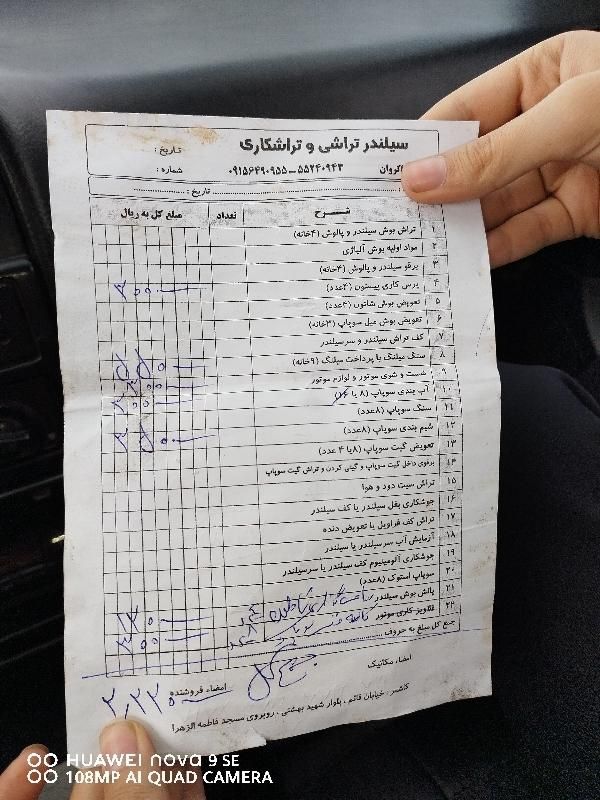 سیلندر تراشی و تراشکاری
تاریخ :
کاروان ۵۵۲۴۰۹۴۳ ــ ۰۹۱۵۶۴۹۰۹۵۵
شماره :
تاریخ :
شـــرح تعداد مبلغ کل به ریال
۱ تراش بوش سیلندر و پالوش (۴خانه)
۲ مواد اولیه بوش آلیاژی
۳ برقو سیلندر و پالوش (۴خانه)
۴ پرس کاری پیستون (۴عدد) ۳۰۰
۵ تعویض بوش شاتون (۴عدد)
۶ تعویض بوش میل سوپاپ (۳خانه)
۷ کف تراش سیلندر و سرسیلندر
۸ سنگ میلنگ با پرداخت میلنگ (۹خانه)
۹ شست و شوی موتور و لوازم موتور
۱۰ آب بندی سوپاپ (۸ یا ۱۶)
۱۱ سنگ سوپاپ (۸عدد)
۱۲ شیم بندی سوپاپ (۸عدد)
۱۳ تعویض گیت سوپاپ (۸یا ۴ عدد)
۱۴ برقوی داخل گیت سوپاپ و گیتی کردن و تراش گیت سوپاپ
۱۵ تراش سیت دود و هوا
۱۶ جوشکاری بغل سیلندر یا کف سیلندر
۱۷ تراش کف فراویل یا تعویض دنده
۱۸ آزمایش آب سرسیلندر یا سیلندر
۱۹ جوشکاری آلومینیوم کف سیلندر یا سرسیلندر
۲۰ سوپاپ استوک (۸عدد)
۲۱ پالش بوش سیلندر
۲۲ قلاویز کاری موتور ۳۵۰
جمع کل مبلغ به حروف
امضاء مکانیک امضاء فروشنده
جمع کل
کاشمر ، خیابان قائم ، بلوار شهید بهشتی ، روبروی مسجد فاطمه الزهرا
HUAWEI nova 9 SE
108MP AI QUAD CAMERA